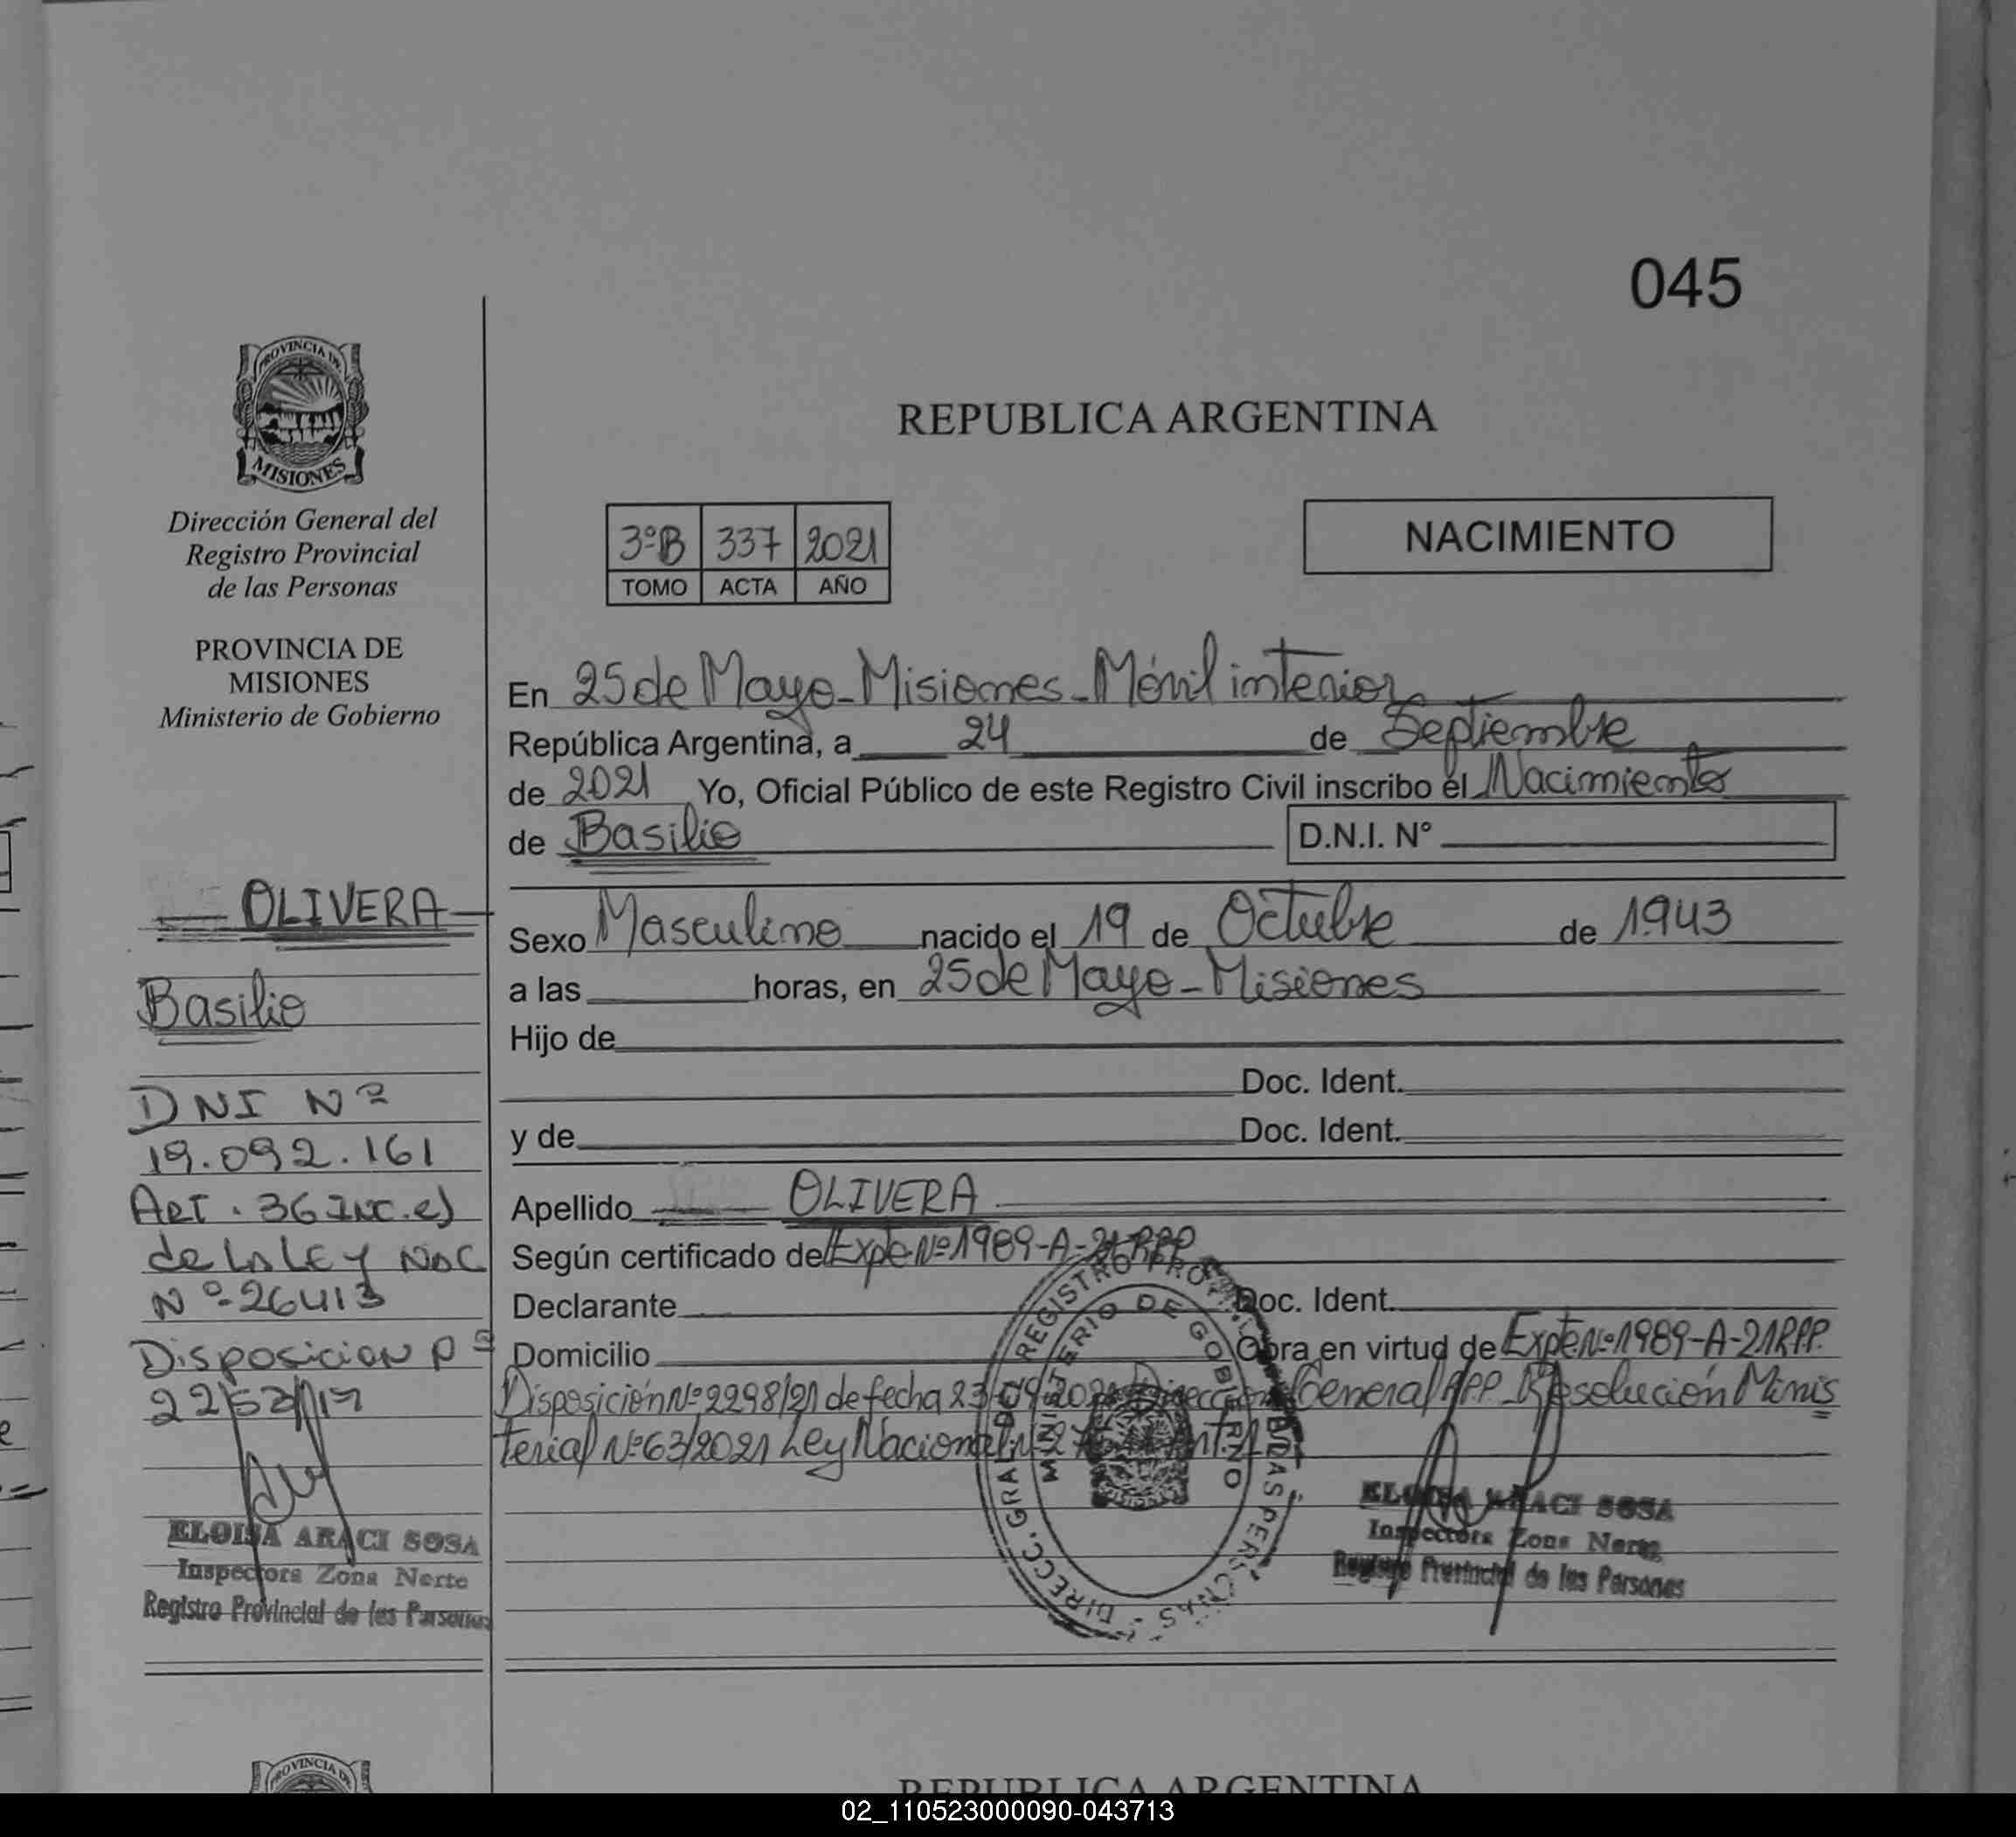 045
PROVINCIA DE
MISIONES
Dirección General del
Registro Provincial
de las Personas
PROVINCIA DE
MISIONES
Ministerio de Gobierno
OLIVERA
Basilio
DNI Nº
19.092.161
Art. 36 Inc. e)
de la Ley Nac
Nº 26413
Disposicion pª
ELOISA ARACI SOSA
Inspectora Zona Norte
Registro Provincial de las Personas
REPUBLICA ARGENTINA
3ºB 337 2021
TOMO ACTA AÑO
NACIMIENTO
En 25 de Mayo - Misiones - Móvil interior
República Argentina, a 24 de Septiembre
de 2021 Yo, Oficial Público de este Registro Civil inscribo el Nacimiento
de Basilio D.N.I. N°
Sexo Masculino nacido el 19 de Octubre de 1943
a las horas, en 25 de Mayo - Misiones
Hijo de
Doc. Ident.
y de Doc. Ident.
Apellido OLIVERA
Según certificado de Expe Nº 1989-A-21 RPP
Declarante Doc. Ident.
Domicilio Obra en virtud de Expte Nº 1989-A-21 RPP.
Disposición Nº 2298/21 de fecha 23/09/2021 Dirección General RPP - Resolución Minis
terial Nº 63/2021 Ley Nacional
DIRECC. GRAL. REGISTRO PROV. DE LAS PERSONAS
MINISTERIO DE GOBIERNO
ELOISA ARACI SOSA
Inspectora Zona Norte
Registro Provincial de las Personas
PROVINCIA DE
REPUBLICA ARGENTINA
02_110523000090-043713